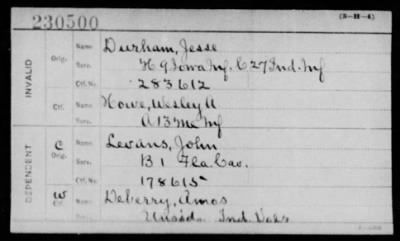 230500
(3-22-4)
INVALID
Orig. Name Durham, Jesse
Serv. H 9 Iowa Inf. C 27 Ind. Inf
Ctf. No. 283612
Ctf. Name Howe, Wesley A
Serv. A 13 Me Inf
DEPENDENT
C Orig. Name Levans, John
Serv. B 1 Fla. Cav.
Ctf. No. 178615
W Ctf. Name Deberry, Amos
Unasd. Ind. Vols